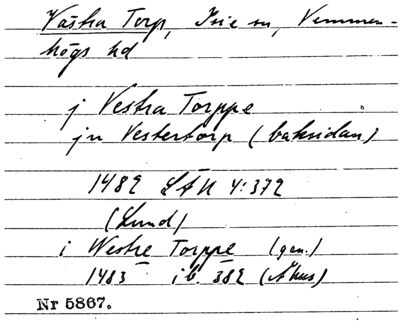 Västra Torp, Isie sn, Vemmen-
högs hd
j Vestra Torppe
jn Vestertorp (baksidan)
1482 LÄU 4:372
(Lund)
i Westre Torppe (gen.)
1483 ib. 382 (Åhus)
Nr 5867.